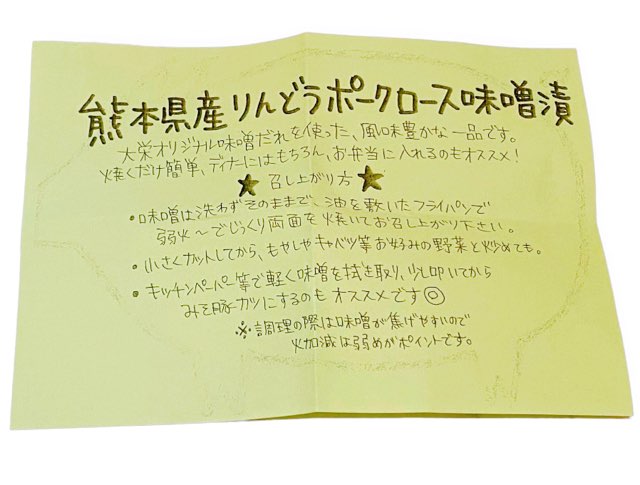 熊本県産りんどうポークロース味噌漬
大栄オリジナル味噌だれを使った、風味豊かな一品です。
焼くだけ簡単、ディナーにはもちろん、お弁当に入れるのもオススメ!
★ 召し上がり方 ★
・味噌は洗わずそのままで、油を敷いたフライパンで
弱火〜でじっくり両面を焼いてお召し上がり下さい。
・小さくカットしてから、もやしやキャベツ等お好みの野菜と炒めても。
・キッチンペーパー等で軽く味噌を拭き取り、少し叩いてから
みそ豚カツにするのもオススメです◎
※調理の際は味噌が焦げやすいので
火加減は弱めがポイントです。